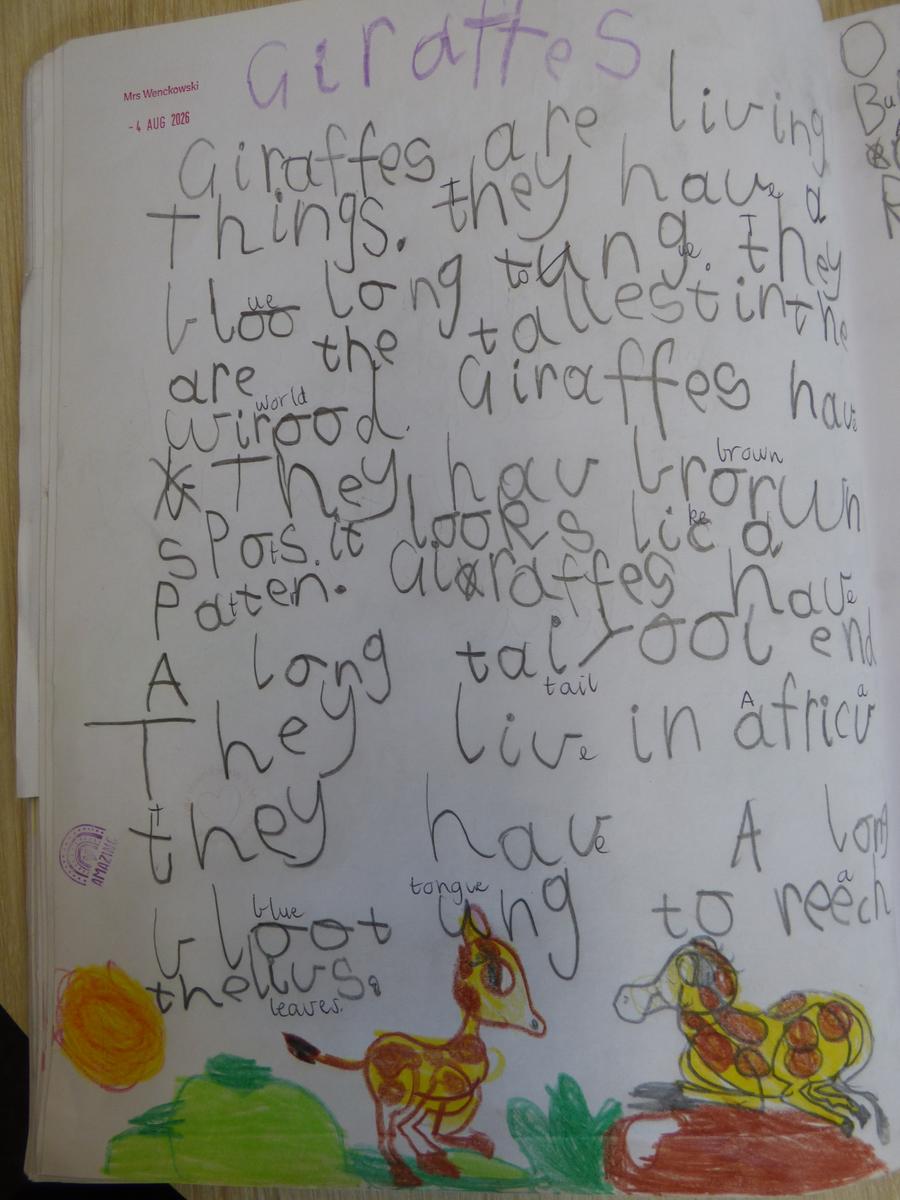 Giraffes
Mrs Wenckowski
- 4 AUG 2026
Giraffes are living
things. they have a
bloo ue long toung ue. They
are the tallest in the
wirood. world Giraffes have
They hav brorwn brown
spots. it looks like a
Patten. Giraffes have
A long tail tail end
They live in africa
they have A long
bloot blue ung tongue to reech a
thelluvs. leaves.
AMAZING